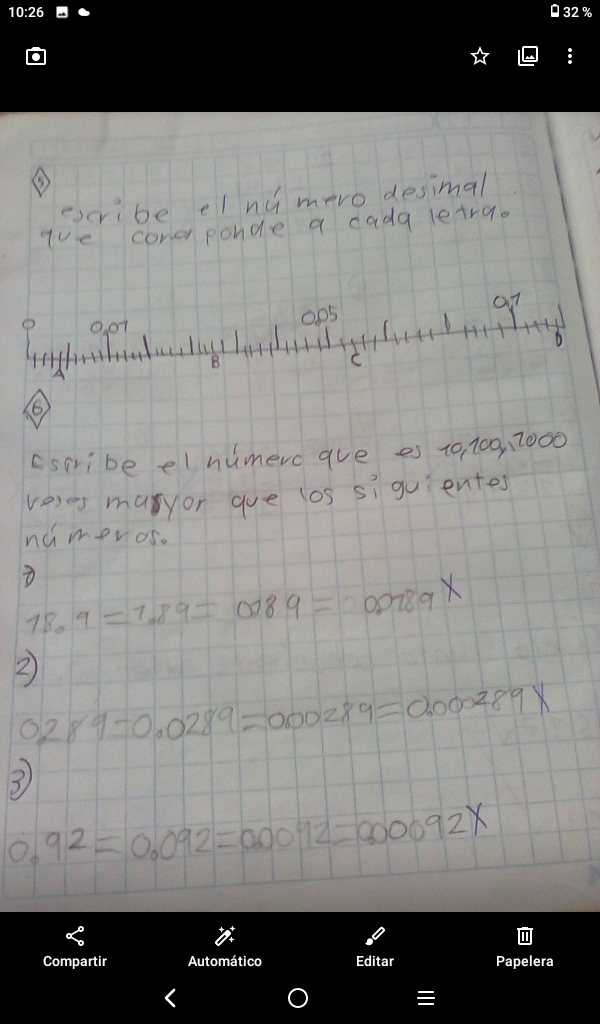 10:26
32 %
5
escribe el número desimal
que coresponde a cada letra.
0 0,01 0,05 0,1
A B C D
6
Escribe el número que es 10,100,1000
veses mayor que los siguientes
números.
1)
18.9 = 1.89 = 0189 = 00189 X
2)
0289 = 0.0289 = 000289 = 0.000289 X
3)
0.92 = 0.092 = 00092 = 000092 X
Compartir
Automático
Editar
Papelera